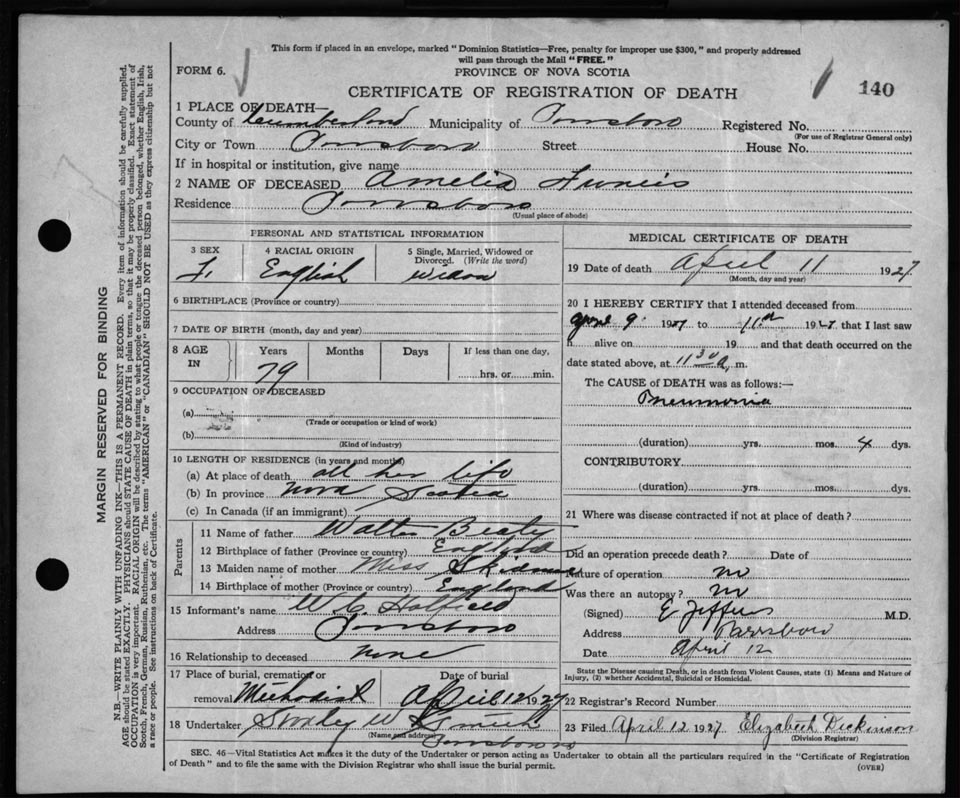 This form if placed in an envelope, marked "Dominion Statistics—Free, penalty for improper use $300," and properly addressed
will pass through the Mail "FREE."
FORM 6.
PROVINCE OF NOVA SCOTIA
CERTIFICATE OF REGISTRATION OF DEATH
140
1 PLACE OF DEATH—
County of Cumberland Municipality of Parrsboro Registered No.
(For use of Registrar General only)
City or Town Parrsboro Street House No.
If in hospital or institution, give name
2 NAME OF DECEASED Amelia Francis
Residence Parrsboro
(Usual place of abode)
PERSONAL AND STATISTICAL INFORMATION
3 SEX 4 RACIAL ORIGIN 5 Single, Married, Widowed or Divorced. (Write the word)
F. English Widow
6 BIRTHPLACE (Province or country)
7 DATE OF BIRTH (month, day and year)
8 AGE IN Years Months Days If less than one day,
79 hrs. or min.
9 OCCUPATION OF DECEASED
(a)
(Trade or occupation or kind of work)
(b)
(Kind of industry)
10 LENGTH OF RESIDENCE (in years and months)
(a) At place of death all her life
(b) In province Nova Scotia
(c) In Canada (if an immigrant)
Parents
11 Name of father Walter
12 Birthplace of father (Province or country) England
13 Maiden name of mother Miss
14 Birthplace of mother (Province or country) England
15 Informant's name W. C. Hatfield
Address Parrsboro
16 Relationship to deceased none
17 Place of burial, cremation or removal Methodist Date of burial April 12 1927
18 Undertaker Stanley W Smith
(Name and address) Parrsboro NS
MEDICAL CERTIFICATE OF DEATH
19 Date of death April 11 1927
(Month, day and year)
20 I HEREBY CERTIFY that I attended deceased from
April 9 1927 to 11th 1927 that I last saw
h alive on 19 and that death occurred on the
date stated above, at 11 30 a. m.
The CAUSE of DEATH was as follows:—
Pneumonia
(duration) yrs. mos. 4 dys.
CONTRIBUTORY
(duration) yrs. mos. dys.
21 Where was disease contracted if not at place of death?
Did an operation precede death? Date of
Nature of operation no
Was there an autopsy? no
(Signed) E Jeffers M.D.
Address Parrsboro
Date April 12
State the Disease causing Death, or in death from Violent Causes, state (1) Means and Nature of
Injury, (2) whether Accidental, Suicidal or Homicidal.
22 Registrar's Record Number
23 Filed April 12 1927 Elizabeth Dickinson
(Division Registrar)
SEC. 46—Vital Statistics Act makes it the duty of the Undertaker or person acting as Undertaker to obtain all the particulars required in the "Certificate of Registration
of Death" and to file the same with the Division Registrar who shall issue the burial permit.
(OVER)
MARGIN RESERVED FOR BINDING
N.B.—WRITE PLAINLY WITH UNFADING INK—THIS IS A PERMANENT RECORD. Every item of information should be carefully supplied.
AGE should be stated EXACTLY. PHYSICIANS should STATE CAUSE OF DEATH in plain terms, so that it may be properly classified. Exact statement of
OCCUPATION is very important. RACIAL ORIGIN will be described by stating to what people or tongue the deceased person belonged, whether English, Irish,
Scotch, French, German, Russian, Ruthenian, etc. The terms "AMERICAN" or "CANADIAN" SHOULD NOT BE USED as they express citizenship but not
a race or people. See instructions on back of Certificate.